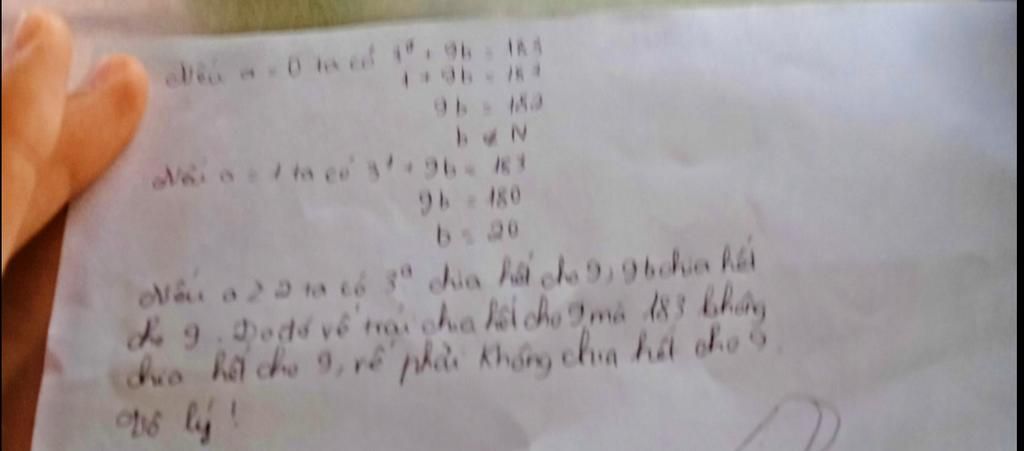 Nếu a = 0 ta có 3⁰ + 9b = 183
1 + 9b = 183
9b = 182
b ∉ N
Nếu a = 1 ta có 3¹ + 9b = 183
9b = 180
b = 20
Nếu a ≥ 2 ta có 3ᵃ chia hết cho 9, 9b chia hết
cho 9. Do đó vế trái chia hết cho 9 mà 183 không
chia hết cho 9, vế phải không chia hết cho 9.
Vô lý!